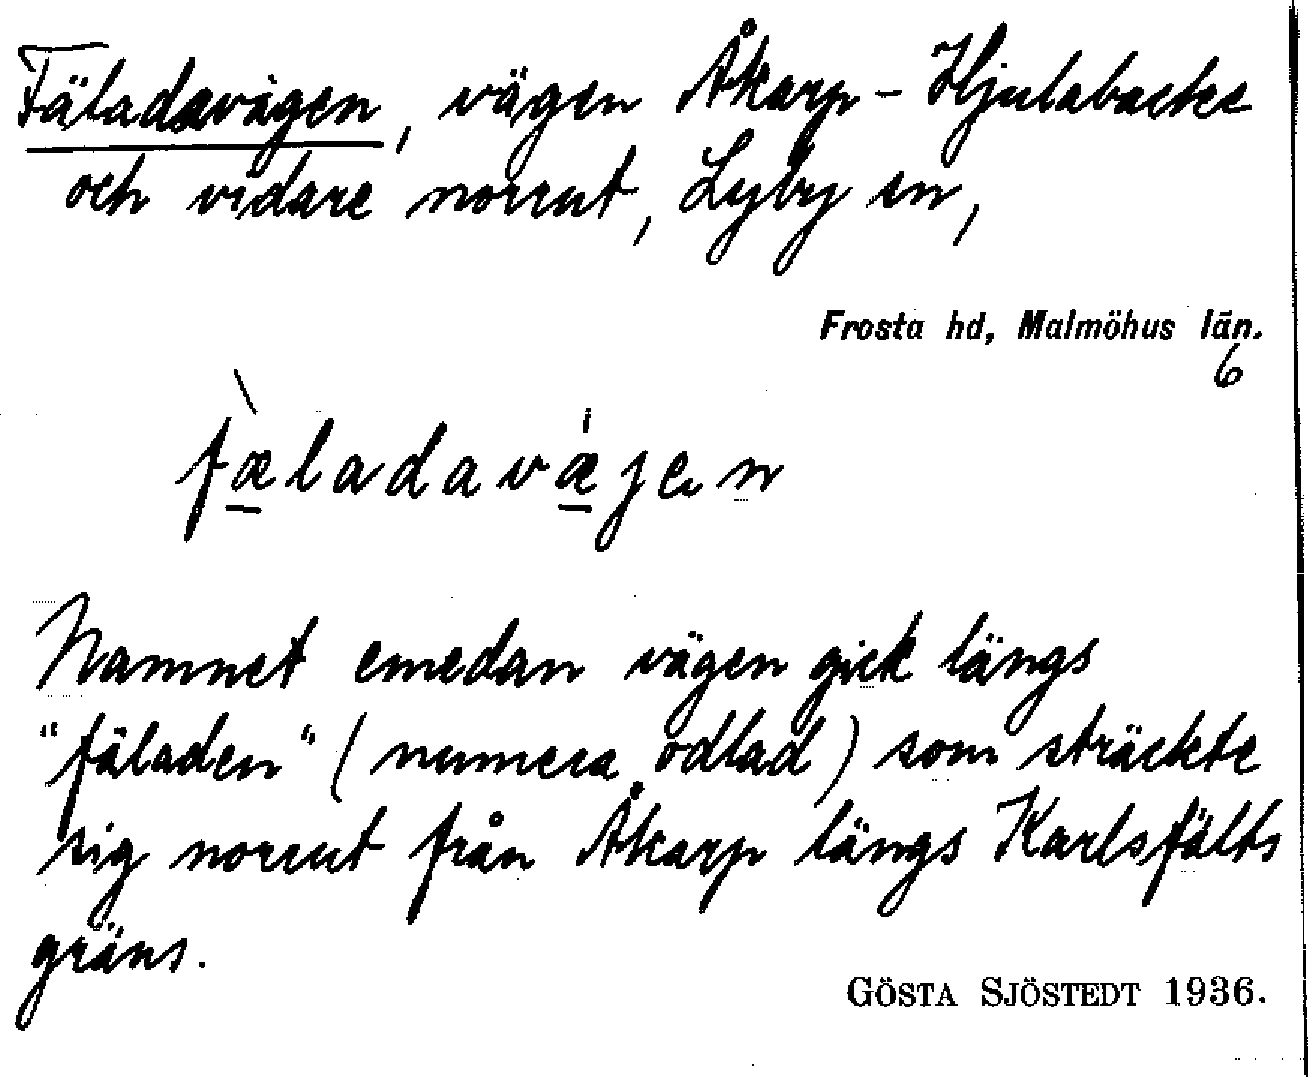 Fäladavägen, vägen Åkarp - Hjulabacke
och vidare norrut, Lyby sn,
Frosta hd, Malmöhus län.
6
fæladavæjen
Namnet emedan vägen gick längs
"fäladen" (numera odlad) som sträckte
sig norrut från Åkarp längs Karlsfälts
gräns.
GÖSTA SJÖSTEDT 1936.